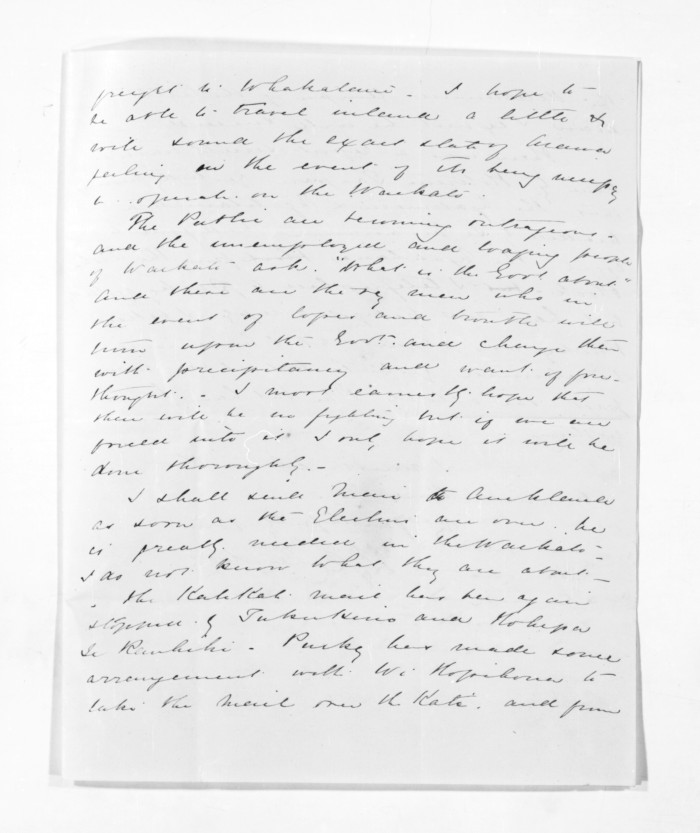 freight to Whakatane. I hope to
be able to travel inland a little &
will sound the exact state of Arawa
feeling in the event of its being necessy
to operate on the Waikato.
The Public are becoming outrageous.
and the unemployed and loafing people
of Waikato ask. "What is the Govt about"
And these are the very men who in
the event of losses and trouble will
turn upon the Govt. and charge them
with precipitancy and want of fore-
thought. - I most earnestly hope that
there will be no fighting but if we are
forced into it I only hope it will be
done thoroughly. -
I shall send Mair to Auckland
as soon as the Elections are over. he
is greatly needed in the Waikato -
I do not know what they are about -
- the Katikati mail has been again
stopped by Tukukino and
Te Rauhihi - has made some
arrangement with Wi Hopihona to
take the mail over the Kati. and from